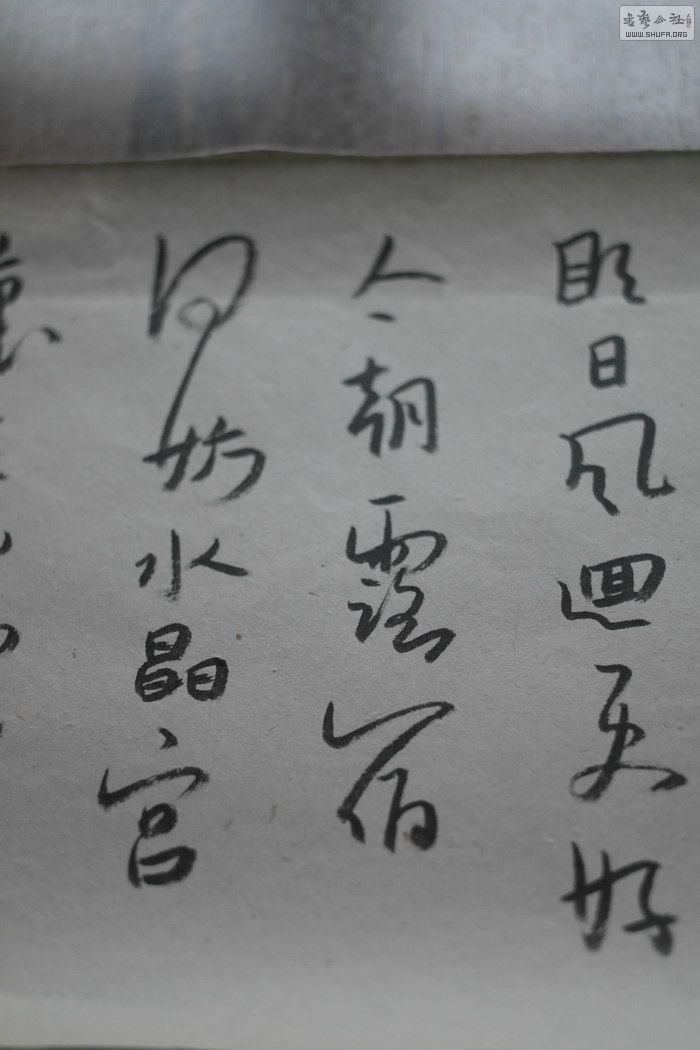 書藝公社
WWW.SHUFA.ORG
明日風迴更好
今朝露宿
何妨水晶宮